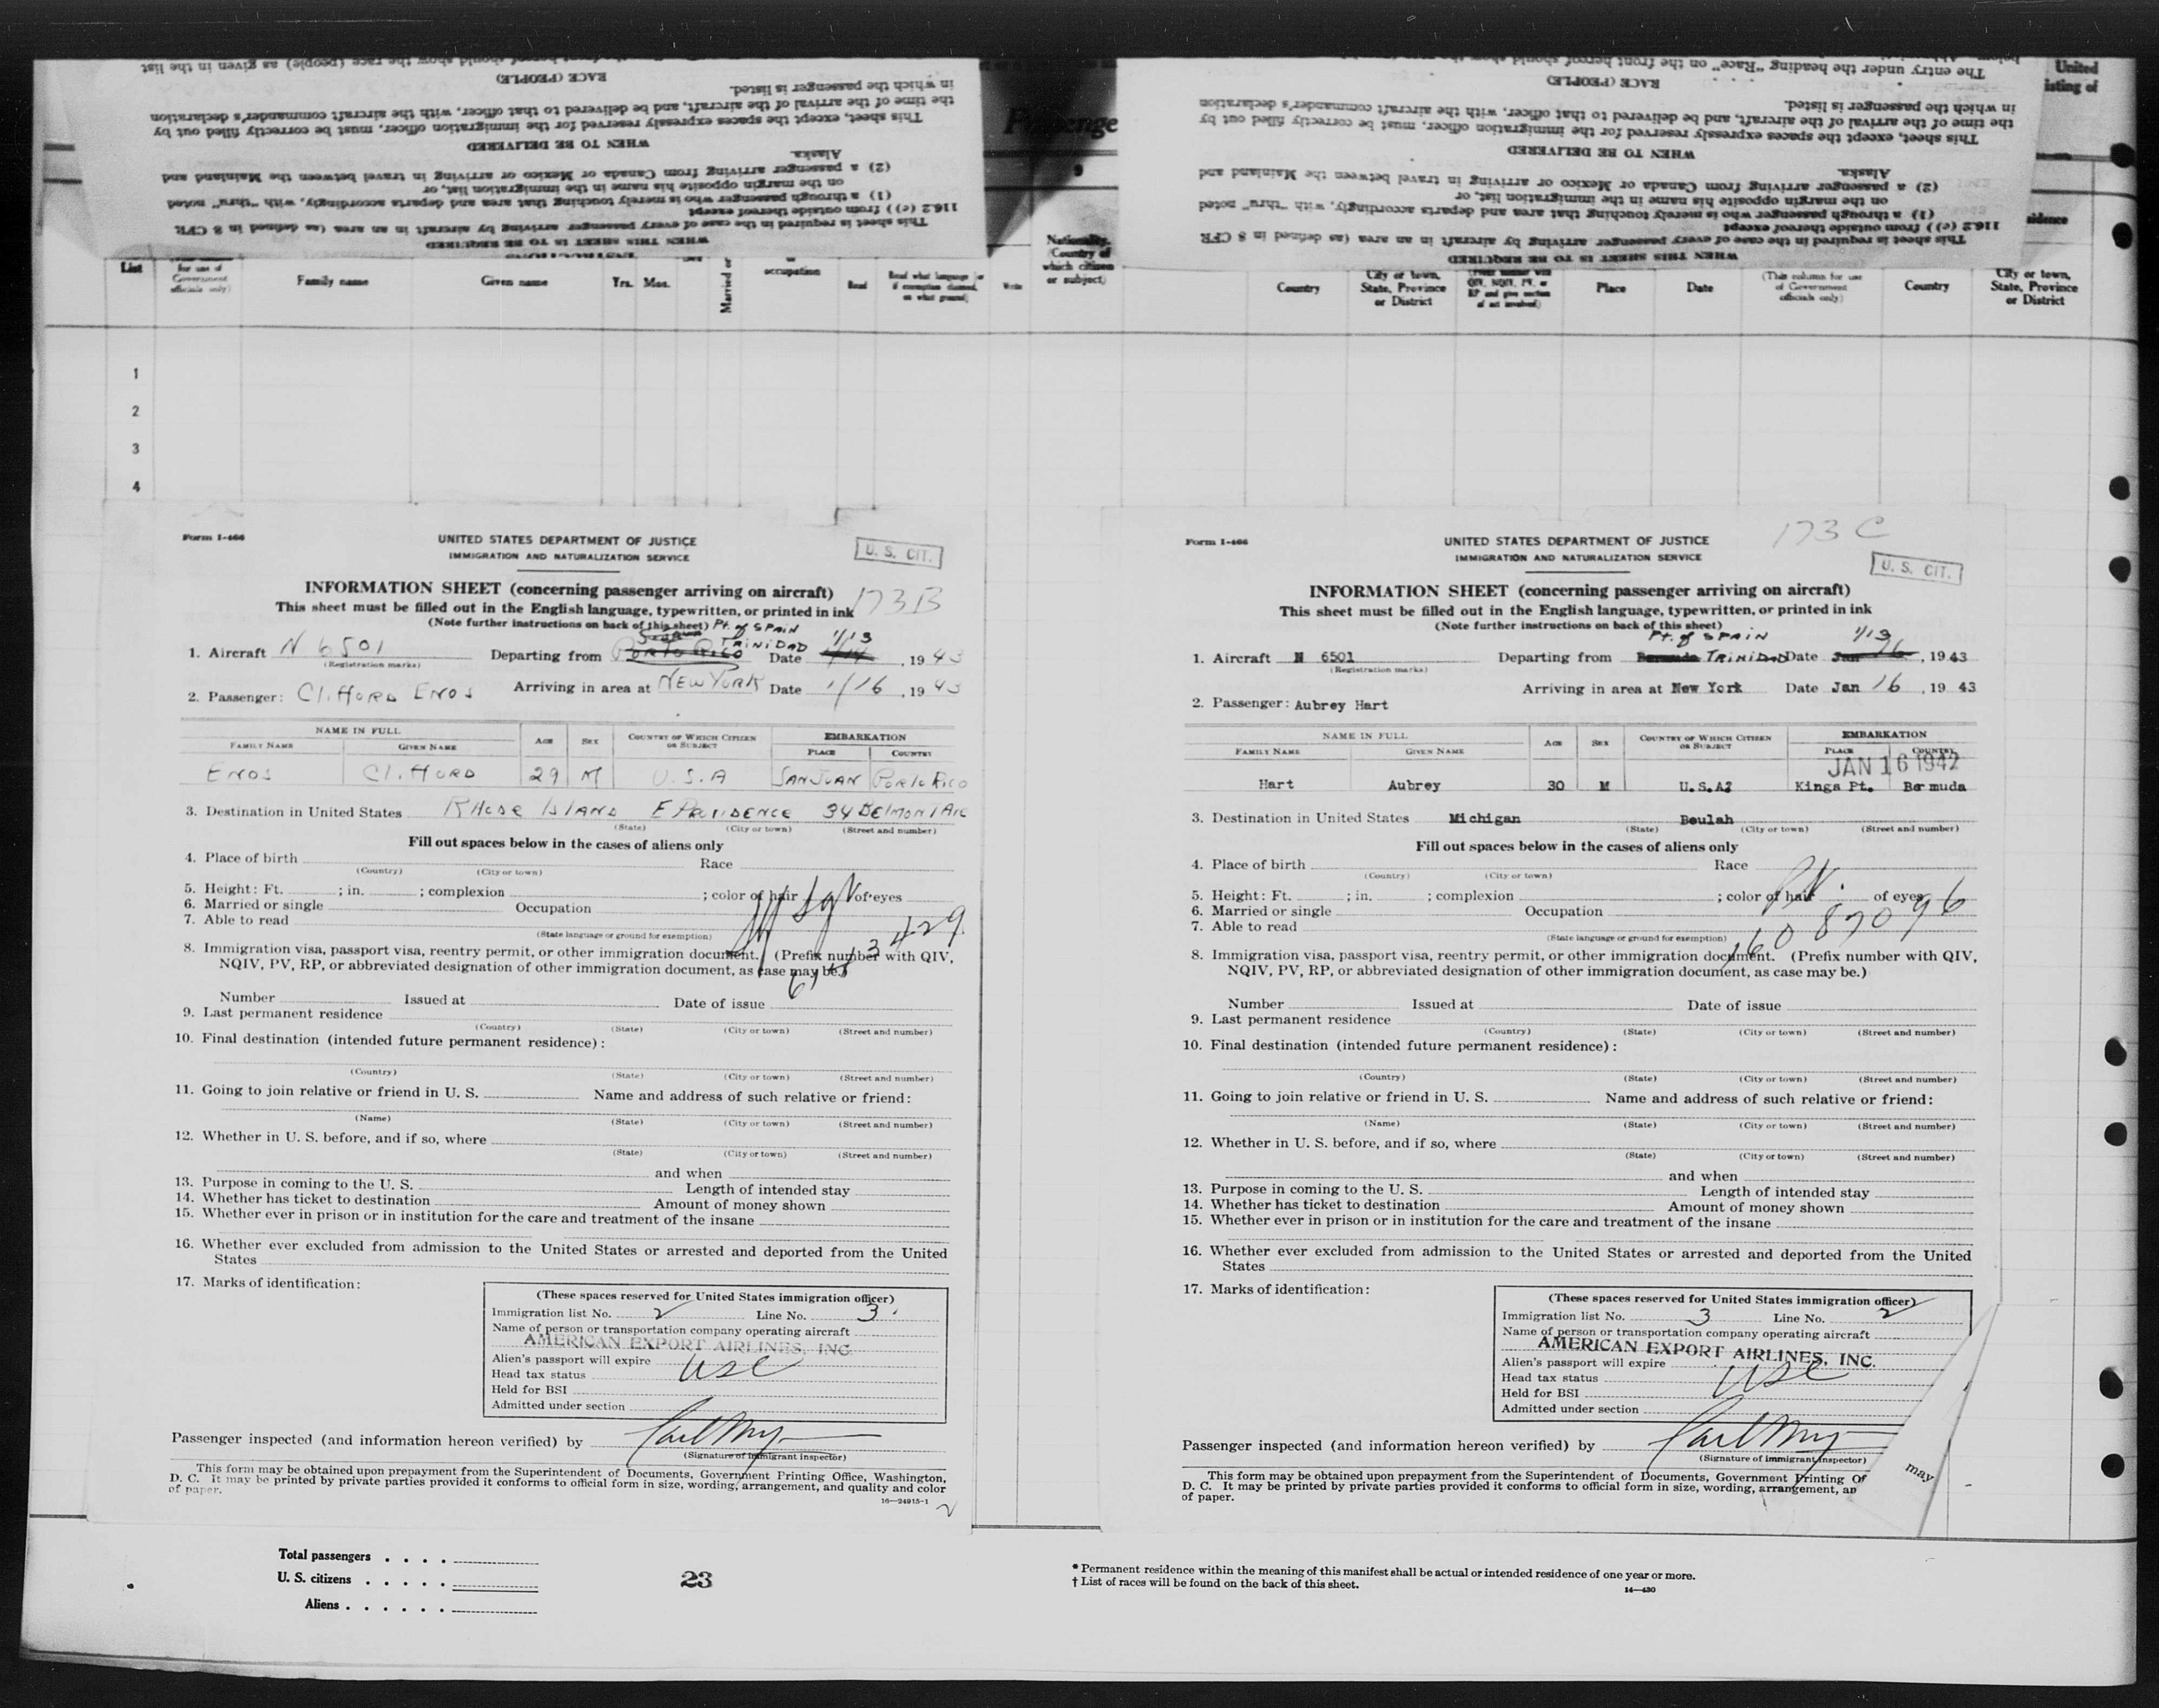 below. 
RACE (PEOPLE)
in which the passenger is listed.
the time of the arrival of the aircraft, and be delivered to that officer, with the aircraft commander's declaration
This sheet, except the spaces expressly reserved for the immigration officer, must be correctly filled out by
WHEN TO BE DELIVERED
Alaska.
(2) a passenger arriving from Canada or Mexico or arriving in travel between the Mainland and
on the margin opposite his name in the immigration list, or
(1) a through passenger who is merely touching that area and departs accordingly, with "thru" noted
116.2 (e)) from outside thereof except
This sheet is required in the case of every passenger arriving by aircraft in an area (as defined in 8 CFR
WHEN THIS SHEET IS TO BE REQUIRED
INSTRUCTIONS
9
The entry under the heading "Race" on the front hereof should show the race (people) as given in the list
RACE (PEOPLE)
in which the passenger is listed.
the time of the arrival of the aircraft, and be delivered to that officer, with the aircraft commander's declaration
This sheet, except the spaces expressly reserved for the immigration officer, must be correctly filled out by
WHEN TO BE DELIVERED
Alaska.
(2) a passenger arriving from Canada or Mexico or arriving in travel between the Mainland and
on the margin opposite his name in the immigration list, or
(1) a through passenger who is merely touching that area and departs accordingly, with "thru" noted
116.2 (e)) from outside thereof except
This sheet is required in the case of every passenger arriving by aircraft in an area (as defined in 8 CFR
WHEN THIS SHEET IS TO BE REQUIRED
United
isting of
sidence
List
for use of
Government
officials only)
Family name
Given name
Yrs. Mos.
Married or
occupation
Read
Read what language (or
if exemption claimed,
on what ground)
Write
Nationality.
(Country of
which citizen
or subject)
Country
City or town,
State, Province
or District
QIV, NQIV, PV, or
RP and give section
of act involved)
Place
Date
(This column for use
of Government
officials only)
Country
City or town,
State, Province
or District
1
2
3
4
Form I-466
UNITED STATES DEPARTMENT OF JUSTICE
IMMIGRATION AND NATURALIZATION SERVICE
U. S. CIT.
INFORMATION SHEET (concerning passenger arriving on aircraft)
173B
This sheet must be filled out in the English language, typewritten, or printed in ink
(Note further instructions on back of this sheet) Pt. of SPAIN
1. Aircraft N 6501 Departing from PORTO RICO TRINIDAD Date 1/14 1/13, 1943
(Registration marks)
2. Passenger: CLIFFORD ENOS Arriving in area at NEW YORK Date 1/16, 1943
NAME IN FULL
AGE
SEX
COUNTRY OF WHICH CITIZEN
OR SUBJECT
EMBARKATION
FAMILY NAME
GIVEN NAME
PLACE
COUNTRY
ENOS CLIFFORD 29 M U.S.A SAN JUAN PORTO RICO
3. Destination in United States RHODE ISLAND E PROVIDENCE 34 BELMONT AVE
(State) (City or town) (Street and number)
Fill out spaces below in the cases of aliens only
4. Place of birth Race
(Country) (City or town)
5. Height: Ft. ; in. ; complexion ; color of hair of eyes
6. Married or single Occupation
7. Able to read
(State language or ground for exemption)
8. Immigration visa, passport visa, reentry permit, or other immigration document. (Prefix number with QIV,
NQIV, PV, RP, or abbreviated designation of other immigration document, as case may be.)
Number Issued at Date of issue
9. Last permanent residence
(Country) (State) (City or town) (Street and number)
10. Final destination (intended future permanent residence):
(Country) (State) (City or town) (Street and number)
11. Going to join relative or friend in U. S. Name and address of such relative or friend:
(Name) (State) (City or town) (Street and number)
12. Whether in U. S. before, and if so, where
(State) (City or town) (Street and number)
and when
13. Purpose in coming to the U. S. Length of intended stay
14. Whether has ticket to destination Amount of money shown
15. Whether ever in prison or in institution for the care and treatment of the insane
16. Whether ever excluded from admission to the United States or arrested and deported from the United
States
17. Marks of identification:
(These spaces reserved for United States immigration officer)
Immigration list No. 2 Line No. 3
Name of person or transportation company operating aircraft
AMERICAN EXPORT AIRLINES, INC.
Alien's passport will expire USC
Head tax status
Held for BSI
Admitted under section
Passenger inspected (and information hereon verified) by
(Signature of immigrant inspector)
This form may be obtained upon prepayment from the Superintendent of Documents, Government Printing Office, Washington,
D. C. It may be printed by private parties provided it conforms to official form in size, wording, arrangement, and quality and color
of paper.
16—24915-1
Form I-466
UNITED STATES DEPARTMENT OF JUSTICE
IMMIGRATION AND NATURALIZATION SERVICE
173 C
U. S. CIT.
INFORMATION SHEET (concerning passenger arriving on aircraft)
This sheet must be filled out in the English language, typewritten, or printed in ink
(Note further instructions on back of this sheet)
Pt. of SPAIN 1/13
1. Aircraft N 6501 Departing from Bermuda TRINIDAD Date Jan 16, 1943
(Registration marks)
Arriving in area at New York Date Jan 16, 1943
2. Passenger: Aubrey Hart
NAME IN FULL
AGE
SEX
COUNTRY OF WHICH CITIZEN
OR SUBJECT
EMBARKATION
FAMILY NAME
GIVEN NAME
PLACE
COUNTRY
JAN 16 1942
Hart Aubrey 30 M U.S.A? Kings Pt. Bermuda
3. Destination in United States Michigan Beulah
(State) (City or town) (Street and number)
Fill out spaces below in the cases of aliens only
4. Place of birth Race
(Country) (City or town)
5. Height: Ft. ; in. ; complexion ; color of hair of eyes
6. Married or single Occupation
7. Able to read
(State language or ground for exemption)
160 87096
8. Immigration visa, passport visa, reentry permit, or other immigration document. (Prefix number with QIV,
NQIV, PV, RP, or abbreviated designation of other immigration document, as case may be.)
Number Issued at Date of issue
9. Last permanent residence
(Country) (State) (City or town) (Street and number)
10. Final destination (intended future permanent residence):
(Country) (State) (City or town) (Street and number)
11. Going to join relative or friend in U. S. Name and address of such relative or friend:
(Name) (State) (City or town) (Street and number)
12. Whether in U. S. before, and if so, where
(State) (City or town) (Street and number)
and when
13. Purpose in coming to the U. S. Length of intended stay
14. Whether has ticket to destination Amount of money shown
15. Whether ever in prison or in institution for the care and treatment of the insane
16. Whether ever excluded from admission to the United States or arrested and deported from the United
States
17. Marks of identification:
(These spaces reserved for United States immigration officer)
Immigration list No. 3 Line No. 2
Name of person or transportation company operating aircraft
AMERICAN EXPORT AIRLINES, INC.
Alien's passport will expire USC
Head tax status
Held for BSI
Admitted under section
Passenger inspected (and information hereon verified) by
(Signature of immigrant inspector)
This form may be obtained upon prepayment from the Superintendent of Documents, Government Printing Of
D. C. It may be printed by private parties provided it conforms to official form in size, wording, arrangement, an
of paper.
may
Total passengers
U. S. citizens
Aliens
23
* Permanent residence within the meaning of this manifest shall be actual or intended residence of one year or more.
† List of races will be found on the back of this sheet.
14—430